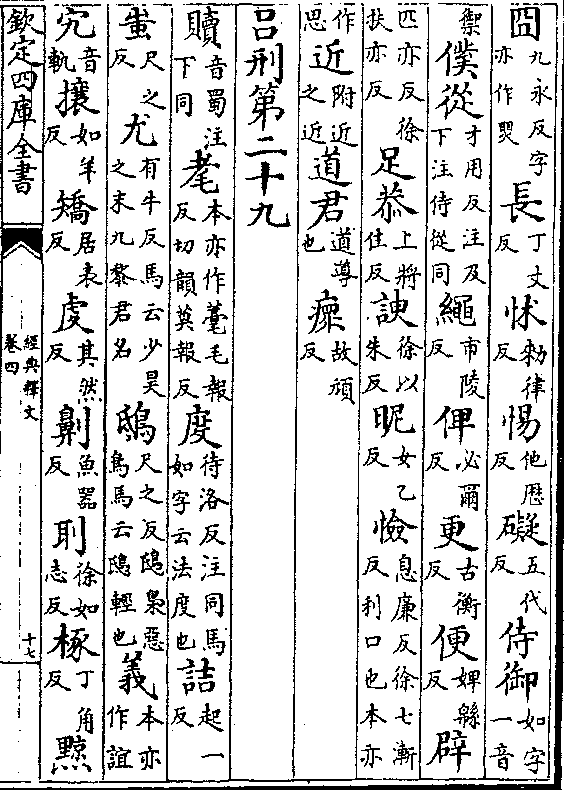 囧九永反字亦作煛長丁丈反怵勑律反惕他歴反礙五代反侍御如字一音
禦僕從才用反注及下注侍從同繩市陵反俾必爾反更古衡反便婢緜反辟
匹亦反徐扶亦反足恭上將住反諛徐以朱反昵女乙反憸息廉反徐七漸反利口也本亦
作思近附近之近道君道導也瘝故頑反
吕刑第二十九
贖音蜀注下同耄本亦作蓦毛報反切韻莫報反度待洛反注同馬如字云法度也詰起一反
蚩尺之反尤有牛反馬云少昊之末九黎君名鴟尺之反鴟梟惡鳥馬云鴟輕也義本亦作誼
宄音軌攘如羊反矯居表反虔其然反劓魚器反刵徐如志反椓丁角反黥
欽定四庫全書
經典釋文
卷四
十七